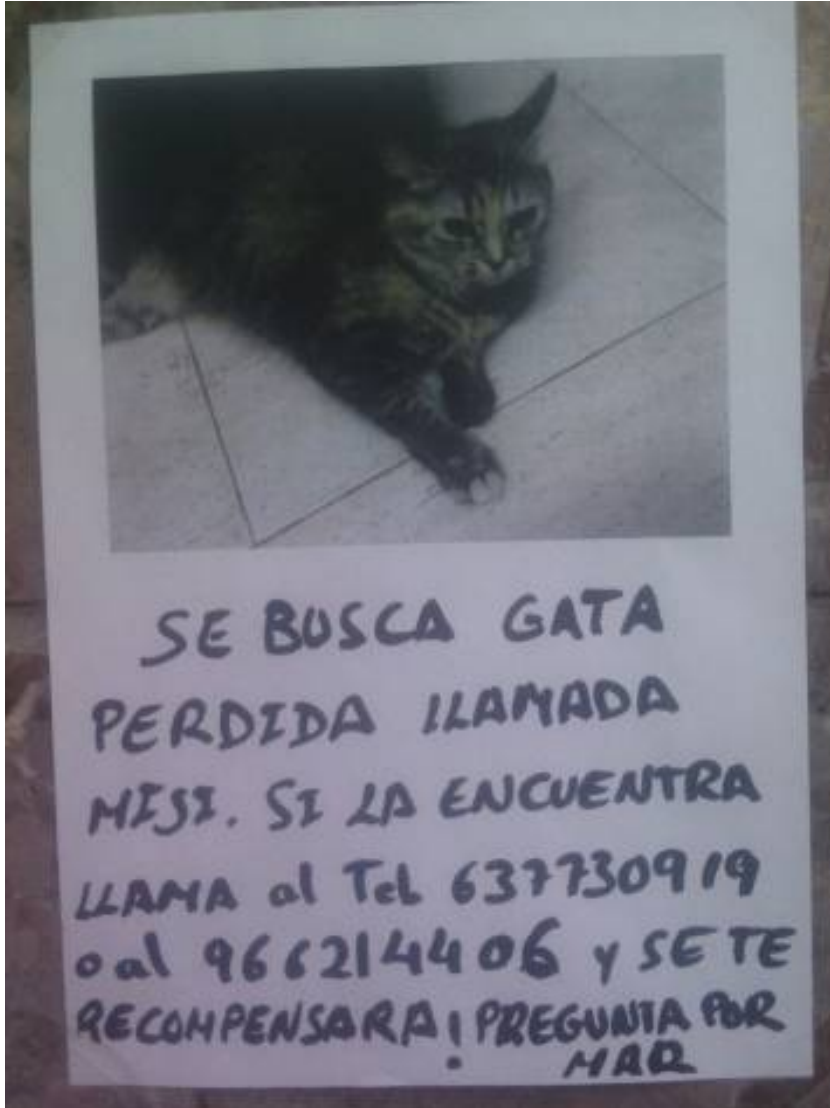 SE BUSCA GATA
PERDIDA LLAMADA
MISI. SI LA ENCUENTRA
LLAMA al Tel 637730919
o al 966214406 y SE TE
RECOMPENSARA! PREGUNTA POR
MAR